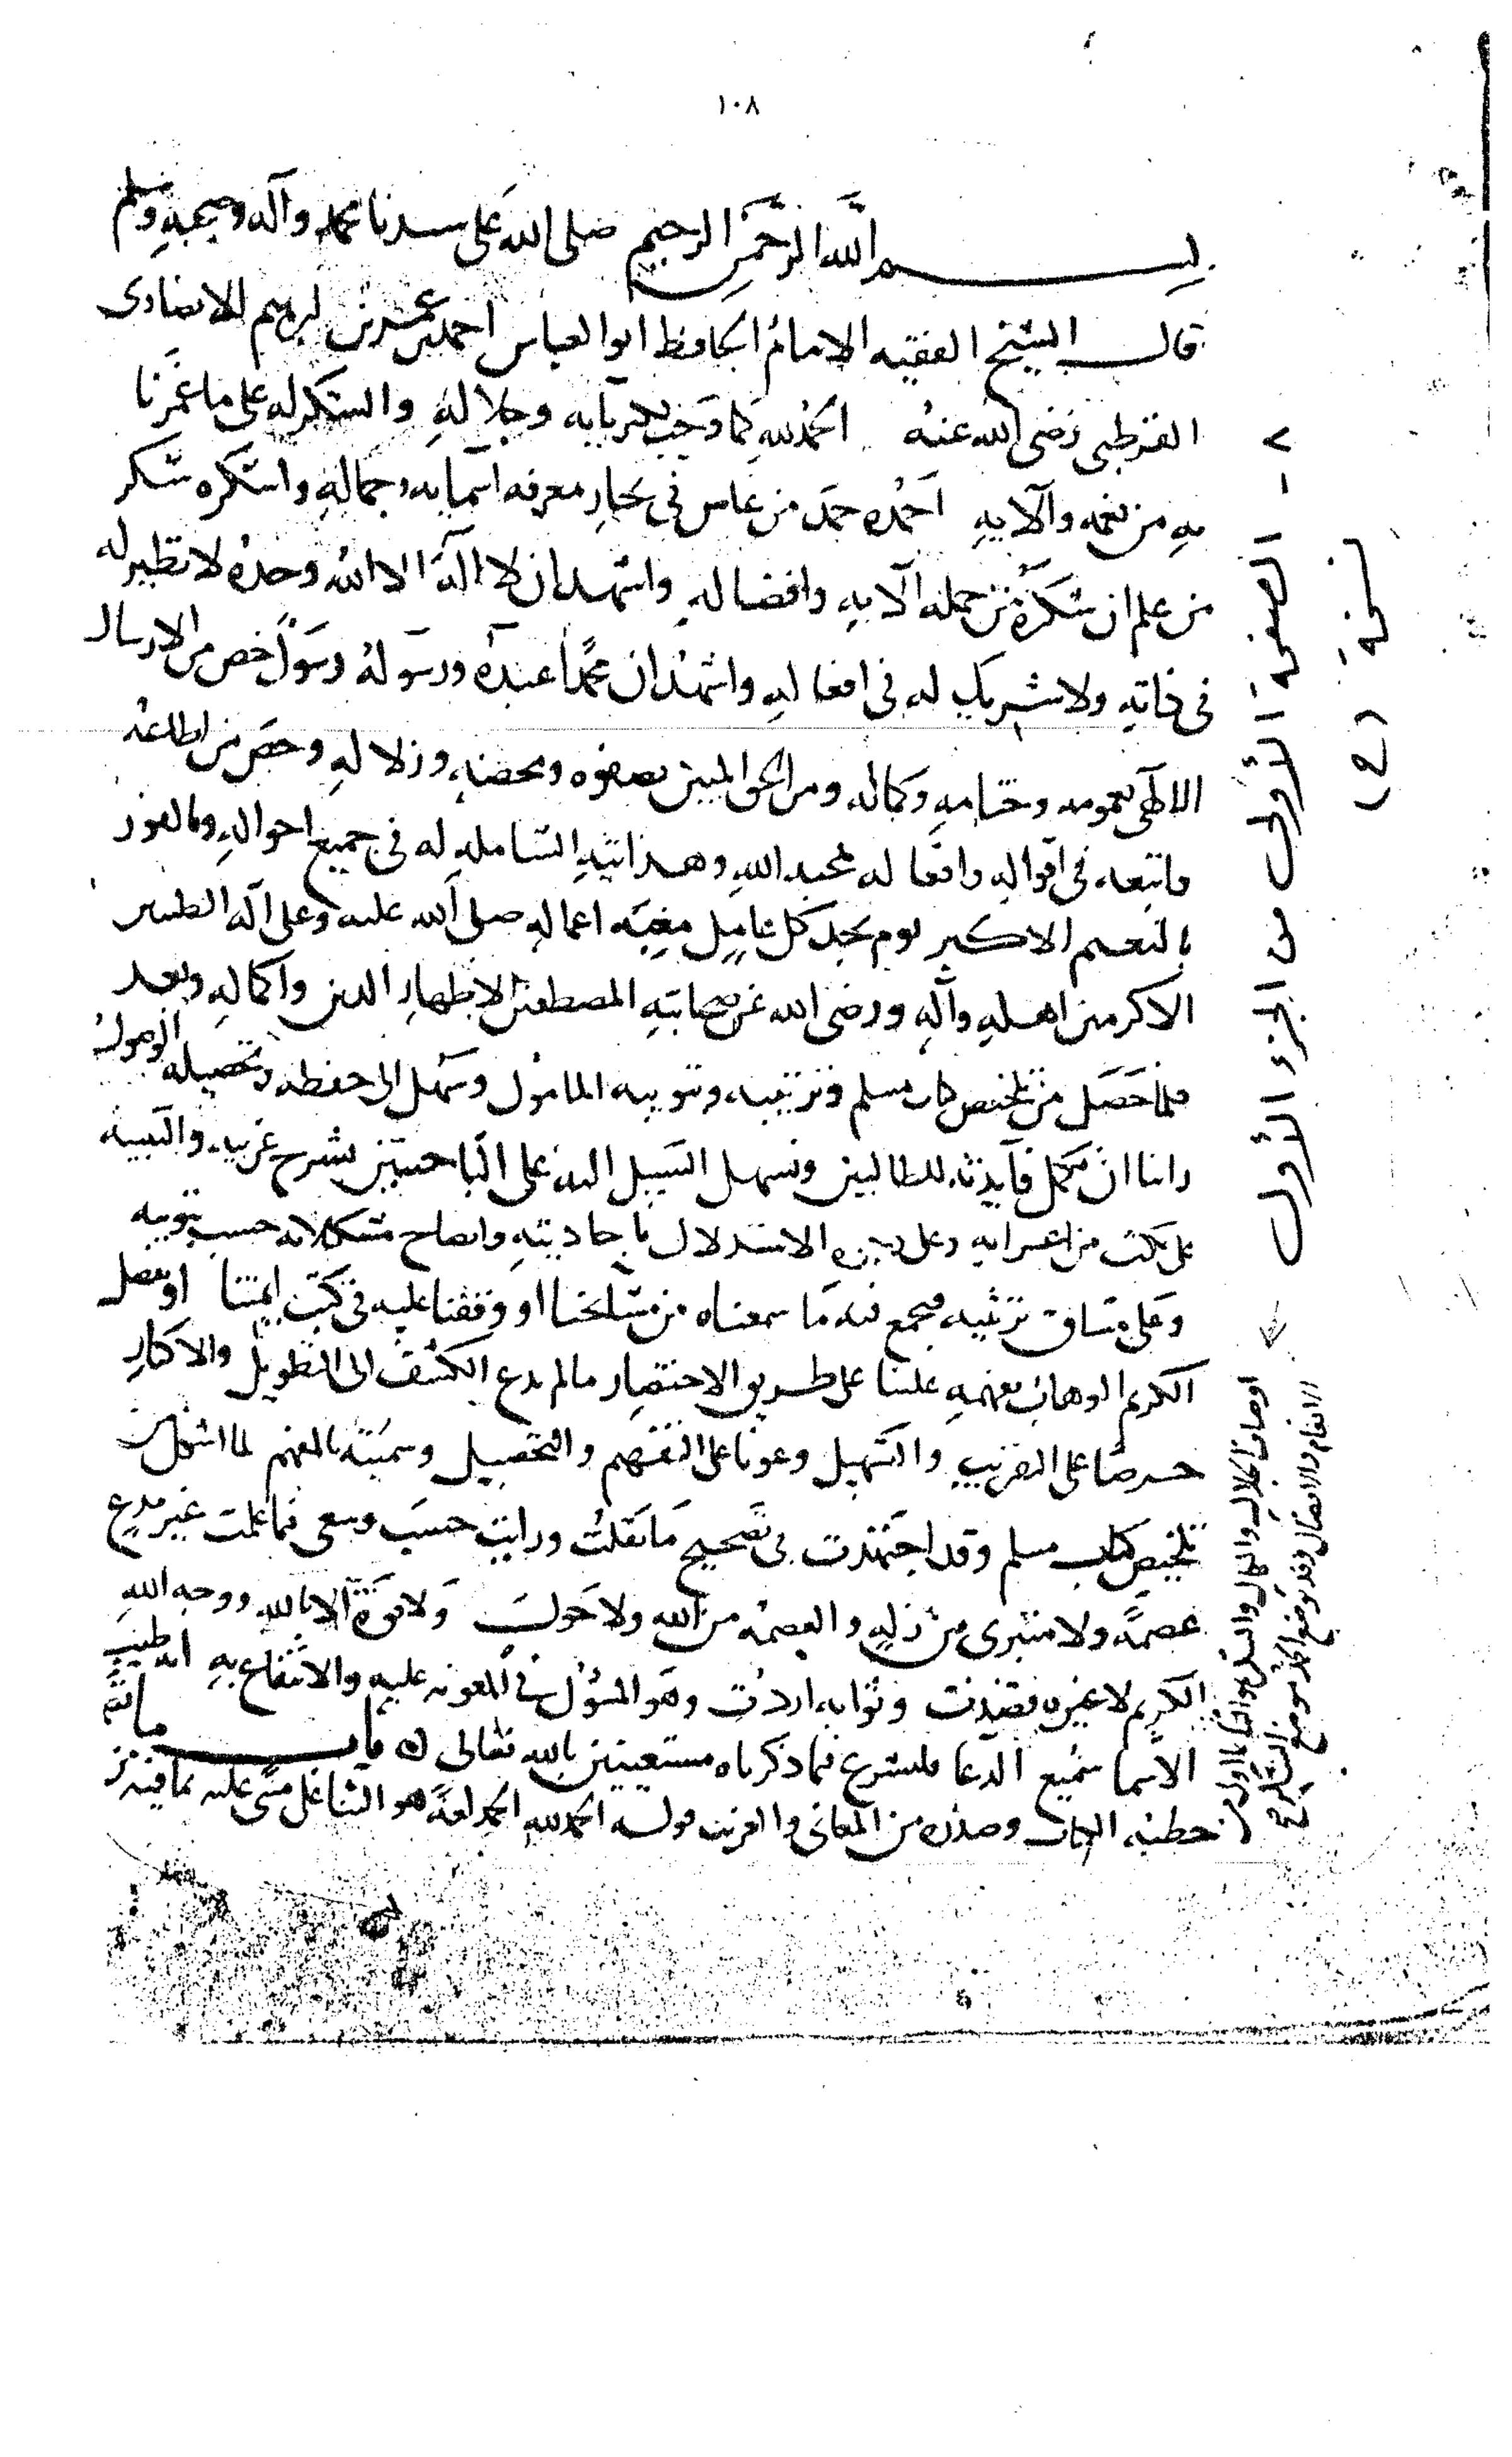 ١٠٨
بسم الله الرحمن الرحيم صلى الله على سيدنا محمد وآله وصحبه وسلم
قال الشيخ الفقيه الامام الحافظ ابو العباس احمد بن عمر بن ابرهيم الانصارى
القرطبى رضى الله عنه الحمد لله كما وجب لكبريايه وجلاله والشكر له على ما غمرنا
به من نعمه وآلايه احمده حمد من غاص فى بحار معرفة اسمايه وجماله واشكره شكر
من علم ان شكره من جملة آلايه وافضاله واشهد ان لا اله الا الله وحده لا نظير له
فى ذاته ولا شريك له فى افعاله واشهد ان محمدا عبده ورسوله رسول خص من الارسال
الالهى بعمومه وختامه وكماله ومن الحق المبين بصفوه ومحضه وزلاله وخص من اطاعه
واتبعه فى اقواله وافعاله بمحبة الله وهدايته الشاملة له فى جميع احواله وبالفوز
بالنعيم الاكبر يوم يجد كل عامل مغبة اعماله صلى الله عليه وعلى آله الطيبين
الاكرمين اهله وآله ورضى الله عن صحابته المصطفين لاظهار الدين واكماله وبعد
فلما حصل من تلخيص كتاب مسلم وترتيبه وتبويبه المامول وسهل الى حفظه وتحصيله الوصول
راينا ان نكمل فايدته للطالبين ونسهل السبيل اليه على الباحثين بشرح غريبه والتنبيه
على نكت من اعرابه وعلى وجوه الاستدلال باحاديثه وايضاح مشكلاته حسب تبويبه
وعلى مساق ترتيبه فنجمع فيه ما سمعناه من مشايخنا او وقفنا عليه فى كتب ايمتنا او تفضل
الكريم الوهاب بفهمه علينا على طريق الاختصار ما لم يدع الكشف الى التطويل والاكثار
حرصا على التقريب والتسهيل وعونا على التفهم والتحصيل وسميته بالمفهم لما اشكل من
تلخيص كتاب مسلم وقد اجتهدت فى تصحيح ما نقلت ورايت حسب وسعى فيما علمت غير مدع
عصمة ولا متبرى من زلة والعصمة من الله ولا حول ولا قوة الا بالله ووجه الله
الكريم لا غيره قصدت وثوابه اردت وهو المسؤل فى المعونة عليه والانتفاع به انه طيب
الاسما سميع الدعا فلنشرع فيما ذكرناه مستعينين بالله تعالى باب ما تضمنته
خطبة الكتاب وصدره من المعانى والغريب قوله الحمد لله الحمد لغة هو الثنا على مثنى عليه بما فيه من
اوصاف الجلال والكمال والشكر هو الثنا بما اولى
من الانعام والافضال وقد يوضع الحمد موضع الشكر
- الصفحة الأولى من الجزء الأول
نسخة (ع)